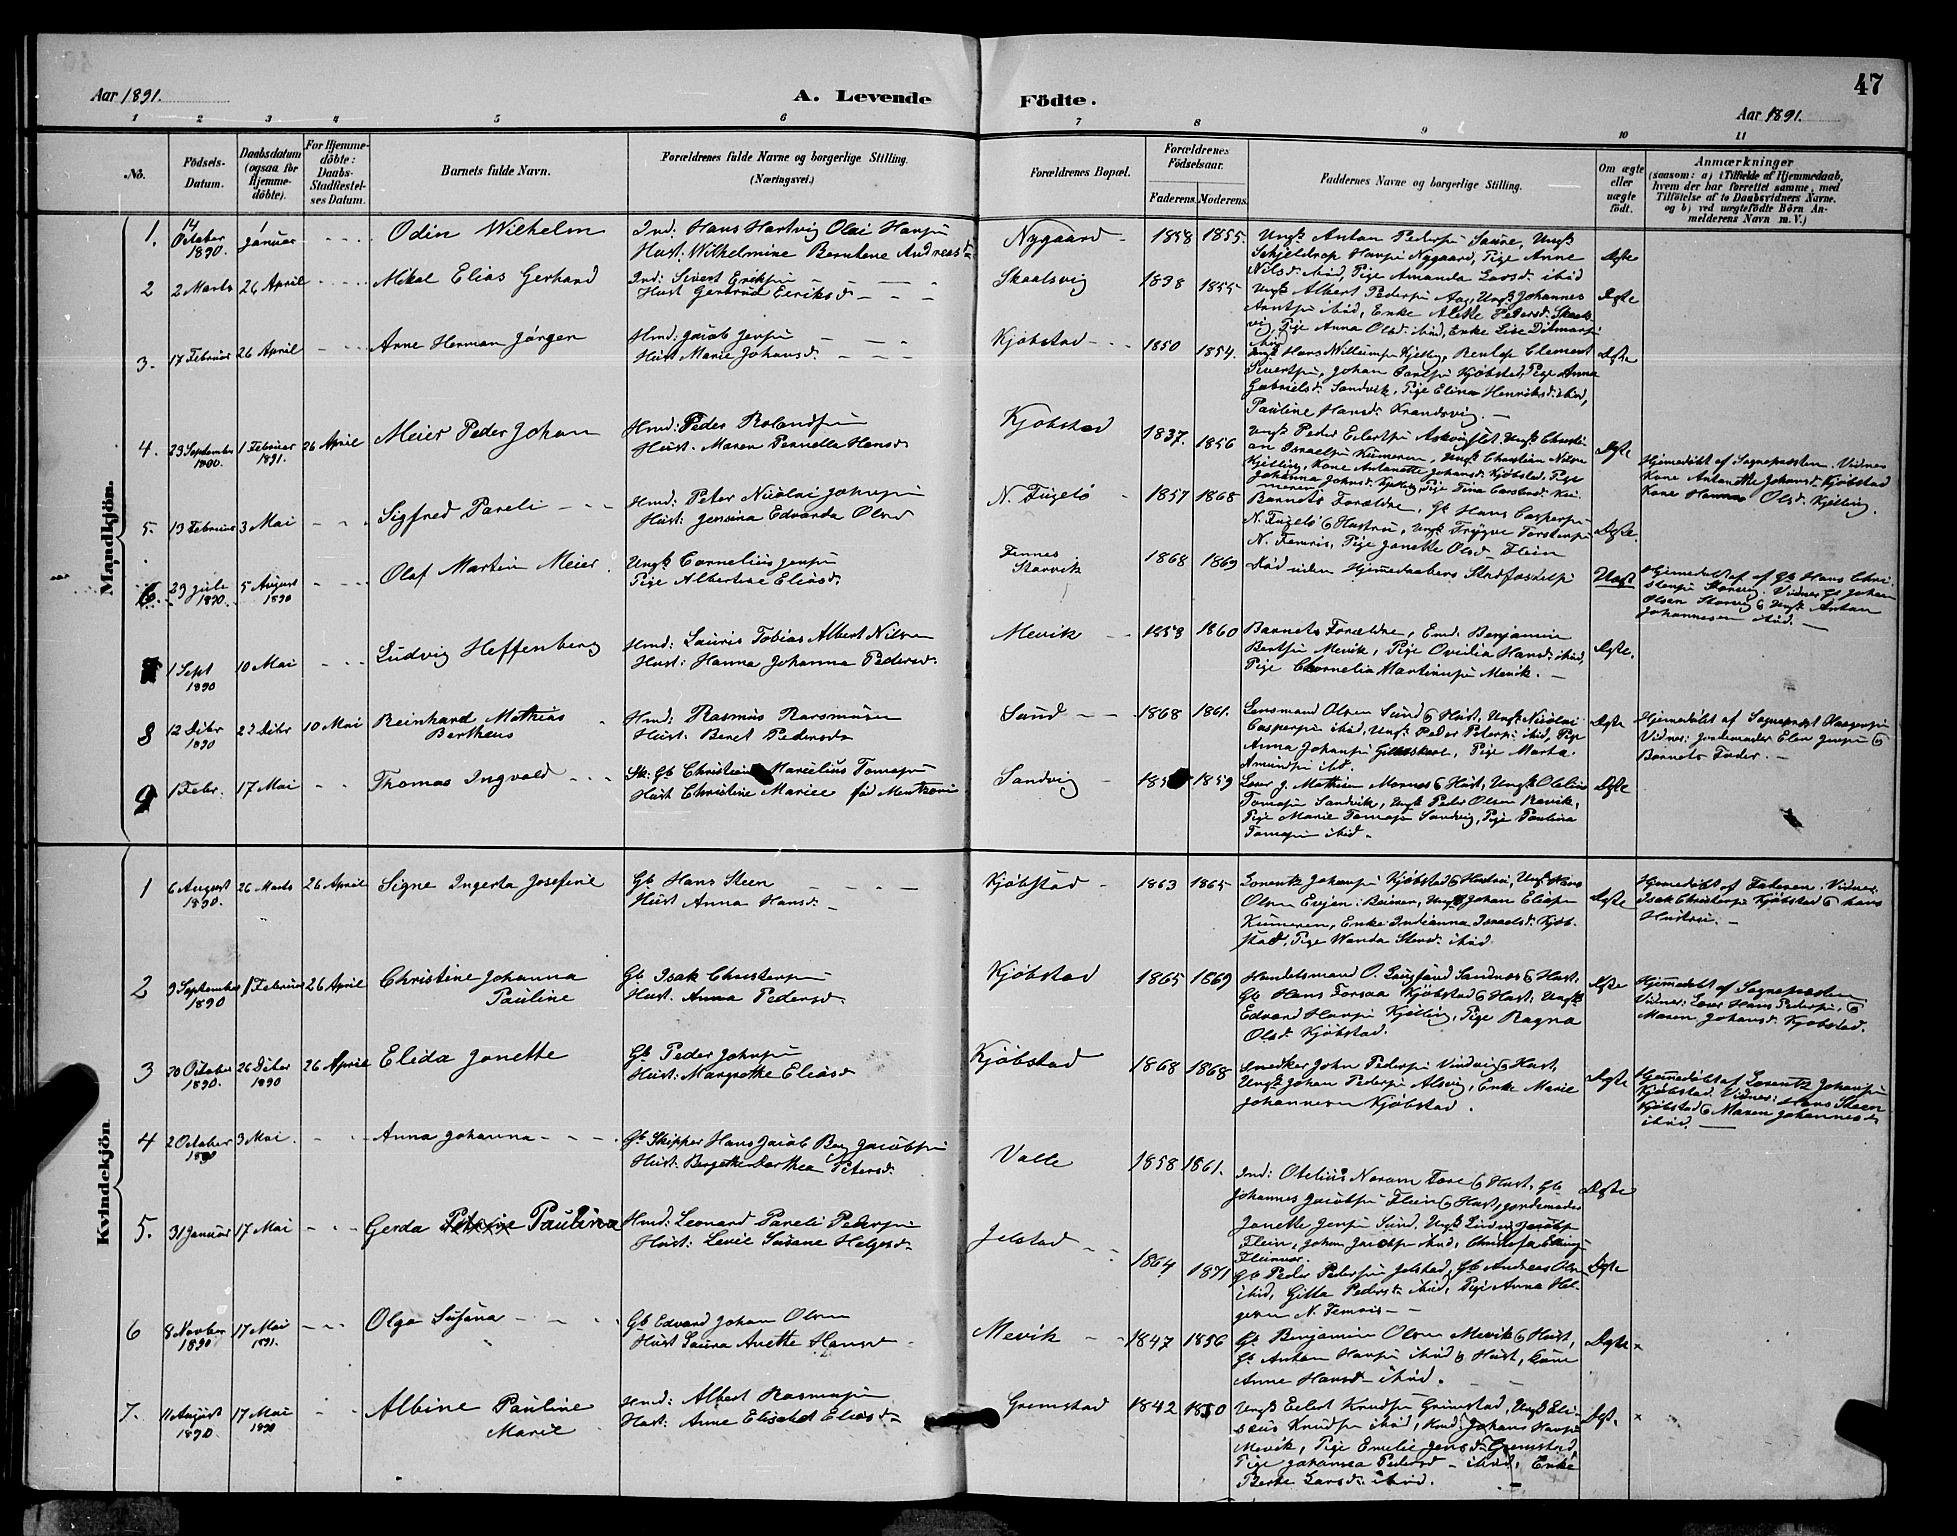 47
Aar 1891.
A. Levende Födte.
Aar 1891.
1 2 3 4 5 6 7 8 9 10 11
No.
Födsels-Datum.
Daabsdatum (ogsaa for Hjemmedöbte).
For Hjemmedöbte: Daabs-Stadfæstelses Datum.
Barnets fulde Navn.
Forældrenes fulde Navne og borgerlige Stilling.
(Næringsvei.)
Forældrenes Bopæl.
Forældrenes Födselsaar.
Faderens. Moderens.
Faddernes Navne og borgerlige Stilling.
Om ægte eller uægte födt.
Anmærkninger
(saasom: a) i Tilfælde af Hjemmedaab, hvem der har forrettet samme, med Tilföielse af to Daabsvidners Navne. og b) ved uægtefödte Börn Anmelderens Navn m. V.)
Mandkjön.
1. 14 October 1890. 1 Januar Odin Wilhelm
Ind. Hans Hartvig Olai Hansen
Hust: Wilhelmine Bernthine Andreasd.
Nygaard 1858 1855.
Ungk Anton Pedersen Saure, Ungk
Schjeldrop Hansen Nygaard, Pige Anne
Nilsd. ibid, Pige Amanda Larsd. ibid
Ægte
2 2 Marts 26 April Mikal Elias Gerhard
Ind: Sivert Eriksen
Hust Gertrud Eeriksd
Skaalsvig 1838 1855
Ungk Albert Pedersen Aag, Ungk Johannes
Arntsen ibid, Enke Alette Pedersd. Skaalsvig, Pige Anna Olsd. ibid, Enke Lise Ditmarsen
ibid
Ægte
3. 17 Februar 26 April Arne Herman Jørgen
Hmd. Jacob Jensen
Hust Marie Johansd.
Kjøbstad 1850 1854.
Ungk Hans Willumsen Kjelling, Clement
Sivertsen, Johan Carlsen Kjøbstad, Pige Anna
Gabrielsd. Sandvik, Pige Elina Henriksd. ibid,
Pauline Hansd.
Ægte
4. 29 September 1890 1 Februar 1891. 26 April Meier Peder Johan
Hmd: Peder Rolandsen
Hust. Maren Pernella Hansd.
Kjøbstad 1837. 1856
Ungk Peder Eilertsen
Ægte
Hjemedøbt af Sognepresten. Vidner
Kone Antonette Johansd. Kjøbstad
Kone Hanna Olsd. Kjelling.
5. 19 Februar 3 Mai Sigfred Pareli
Hmd: Peter Nicolai Johnsen
Hust: Jensina Edvarda Olsd
N. Fugelø 1857 1868
Barnets Forældre, Gb Hans Caspersen
N. Fugelø & Hustru, Ungk Trygve Torstensen
N. Femris, Pige Janette Olsd. Flein
Ægte.
6. 29 Juli 1890. 5 August 1890 Olaf Martin Meier.
Ungk Cornelius Jensen
Pige Albertine Eliasd.
Finnes
Storvik
1868 1869
Død uden Hjemedaabens Stadfæstelse
Uægt
Hjemedøbt af Gb Hans Christensen Storvig. Vidner Gb Johan
Olsen Storvig & Ungk Anton
Johannesen ibid.
7 1 Sept 1890 10 Mai Ludvig Heffenberg
Hmd: Lauris Tobias Albert Nilsen
Hust: Hanna Johanna Pedersd.
Mevik 1858 1860
Barnets Forældre, Emd. Benjamin
Bertsen Mevik, Pige Ovidia Hansd. ibid,
Pige Cornelia Martinusen Mevik.
Ægte.
8 12 Dcbr 1890 27 Dcbr 10 Mai Reinhard Mathias
Bertheus
Hmd: Rasmus Rasmussen
Hust: Beret Pedersd
Sund 1868 1861.
Lensmand Olsen Sund & Hust, Ungk Nicolai
Caspersen ibid, Ungk Peder Petersen ibid, Pige
Anna Johansen Gildeskaal, Pige Marta
Amundsen ibd.
Ægte
Hjemedøbt af Sogneprest
Vidner: Jordemoder Elen Jensen &
Barnets Fader.
9 1 Febr. 17 Mai Thomas Ingvald
Sk: Gb Christian Marcelius Tomasen
Hust Christine Marice fød Mentzoni
Sandvig 185 1859
Lærer J. Mathisen Mornes & Hust, Ungk Otelius
Tomasen Sandvik, Ungk Peder Olsen Mevik,
Pige Marie Tomasen Sandvig, Pige Paulina
Tomasen ibid.
Ægte
Kvindekjön
1 6 August 1890. 26 Marts 26 April Signe Ingerta Josefine
Gb Hans Steen
Hust Anna Hansd.
Kjøbstad 1863 1865
Lorentz Johansen Kjøbstad & Hustru, Ungk Hans
Olsen Evjen: Beieren, Ungk Johan Eliasen
Kumeren, Enke Indianna Israelsd. Kjøbstad, Pige Wanda Stensd. ibid.
Ægte
Hjemedøbt af Faderen. Vidner:
Isak Christensen Kjøbstad & hans
Hustru.
2 9 September 1890 1 Februar 26 April Christine Johanna
Pauline
Gb Isak Christensen
Hust. Anna Pedersd.
Kjøbstad 1865 1869
Handelsmand O. Sandnes & Hust,
Gb Hans Forsaa Kjøbstad & Hust, Ungk
Edvard Hansen Kjelling, Pige Ragna
Olsd. Kjøbstad.
Ægte
Hjemedøbt af Sognepresten
Vidner: Lærer Hans Pedersen, &
Maren Johansd. Kjøbstad.
3 20 October 1890. 26 Dcbr 1890 26 April Elida Janette
Gb Peder Johnsen
Hust: Margrethe Eliasd
Kjøbstad 1868 1868
Snedker John Pedersen Vindvig & Hust,
Ungk Johan Pedersen Alsvig, Enke Marie
Johannesen Kjøbstad.
Ægte
Hjemedøbt af Lorentz Johansen
Kjøbstad. Vidner: Hans Steen
Kjøbstad & Maren Johannesd
ibid.
4 2 October 1890 3 Mai. Anna Johanna
Gb Skipper Hans Jacob Berg Jacobsen
Hust: Bergethe Dorthea Petersd.
Valle 1858 1861.
Ind: Otelius Noram Fore & Hust, Gb
Johannes Jacobsen Flein & Hust, Jordemoder
Janette Jensen Sund, Ungk Ludvig Jacobsen
Flein, Johan Jacobsen ibid, Christofa Elling
Fleinvær
Ægte
5. 31 Januar 17 Mai Gerda Petrine Paulina
Hmd: Leonard Pareli Pedersen
Hust: Levie Susane Helgesd.
Jelstad 1864 1871
Gb Peder Pedersen Jelstad, Gb Andreas Olsen
ibid, Gitta Pedersd. ibid, Pige Anna Helgesen N. Femris
Ægte
6 8 Novber 1890 17 Mai 1891. Olga Susana
Gb Edvard Johan Olsen
Hust Laura Anette Hansd
Mevik 1847 1856
Gb Benjamin Olsen Mevik & Hust,
Gb Antan Hansen ibid & Hust, Kone
Anne Hansd. ibid.
Ægte
7. 11 August 1890 17 Mai 1891 Albine Pauline
Marie
Hmd: Albert Rasmusen
Hust: Anne Elisabet Eliasd.
Grimstad 1842 1850
Ungk Eilert Knudsen Grimstad, Ungk Elisæus Knudsen ibid, Hmd. Johans Hansen
Mevik, Pige Emelie Jensd. Grimstad,
Pige Johanna Pedersd. ibid, Enke
Berte Larsd. ibid.
Ægte